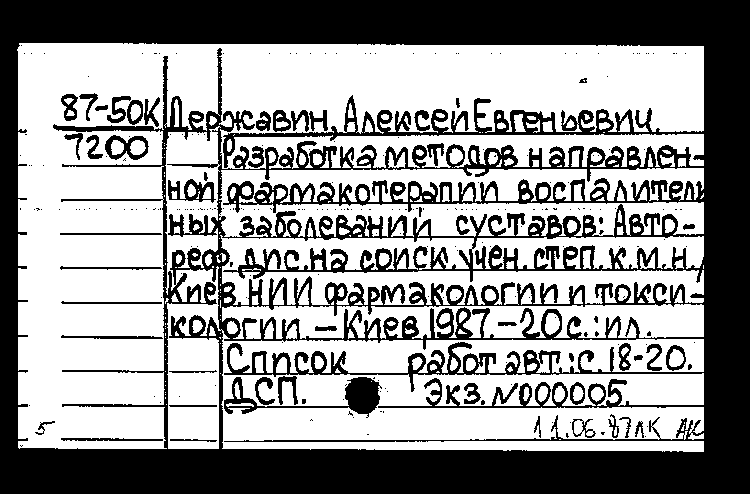 87-50К Державин, Алексей Евгеньевич.
7200 Разработка методов направлен-
ной фармакотерапии воспалитель
ных заболеваний суставов: Авто-
реф. дис. на соиск. учен. степ. к.м.н./
Киев. НИИ фармакологии и токси-
кологии. – Киев, 1987. – 20 с.: ил.
Список работ авт.: с. 18-20.
ДСП. Экз. N000005.
5 11.06.87 лк АК